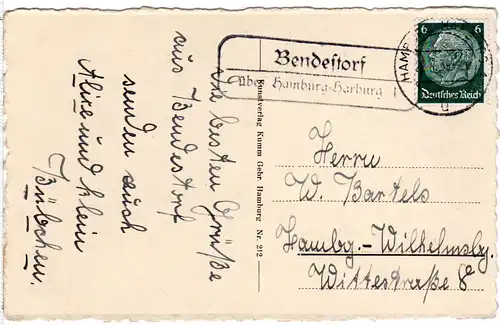 Die besten Grüße
aus Bendestorf
senden euch
Alice und klein
Bübchen.
Bendestorf
über Hamburg-Harburg 1
HAM
6 6
Deutsches Reich
Kunstverlag Kumm Gebr. Hamburg Nr. 212
Herrn
W. Bartels
Hambg.-Wilhelmsbg.
Wittestraße 8